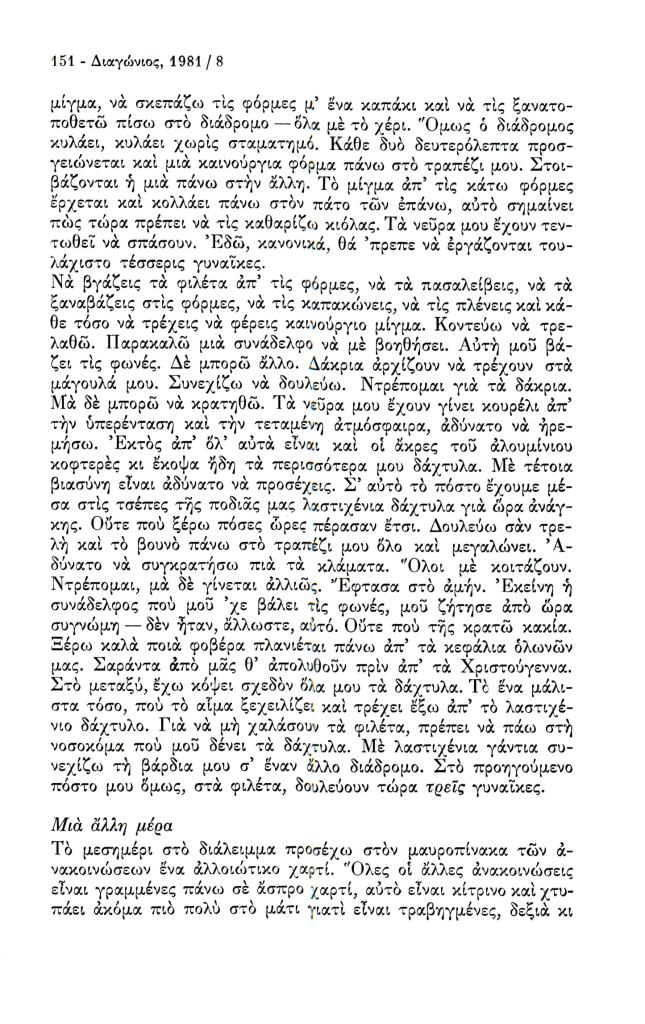 151 - Διαγώνιος, 1981 / 8
μίγμα, νὰ σκεπάζω τὶς φόρμες μ' ἕνα καπάκι καὶ νὰ τὶς ξανατο-
ποθετῶ πίσω στὸ διάδρομο — ὅλα μὲ τὸ χέρι. Ὅμως ὁ διάδρομος
κυλάει, κυλάει χωρὶς σταματημό. Κάθε δυὸ δευτερόλεπτα προσ-
γειώνεται καὶ μιὰ καινούργια φόρμα πάνω στὸ τραπέζι μου. Στοι-
βάζονται ἡ μιὰ πάνω στὴν ἄλλη. Τὸ μίγμα ἀπ' τὶς κάτω φόρμες
ἔρχεται καὶ κολλάει πάνω στὸν πάτο τῶν ἐπάνω, αὐτὸ σημαίνει
πὼς τώρα πρέπει νὰ τὶς καθαρίζω κιόλας. Τὰ νεῦρα μου ἔχουν τεν-
τωθεῖ νὰ σπάσουν. Ἐδῶ, κανονικά, θά 'πρεπε νὰ ἐργάζονται του-
λάχιστο τέσσερις γυναῖκες.
Νὰ βγάζεις τὰ φιλέτα ἀπ' τὶς φόρμες, νὰ τὰ πασαλείβεις, νὰ τὰ
ξαναβάζεις στὶς φόρμες, νὰ τὶς καπακώνεις, νὰ τὶς πλένεις καὶ κά-
θε τόσο νὰ τρέχεις νὰ φέρεις καινούργιο μίγμα. Κοντεύω νὰ τρε-
λαθῶ. Παρακαλῶ μιὰ συνάδελφο νὰ μὲ βοηθήσει. Αὐτὴ μοῦ βά-
ζει τὶς φωνές. Δὲ μπορῶ ἄλλο. Δάκρια ἀρχίζουν νὰ τρέχουν στὰ
μάγουλά μου. Συνεχίζω νὰ δουλεύω. Ντρέπομαι γιὰ τὰ δάκρια.
Μὰ δὲ μπορῶ νὰ κρατηθῶ. Τὰ νεῦρα μου ἔχουν γίνει κουρέλι ἀπ'
τὴν ὑπερένταση καὶ τὴν τεταμένη ἀτμόσφαιρα, ἀδύνατο νὰ ἠρε-
μήσω. Ἐκτὸς ἀπ' ὅλ' αὐτὰ εἶναι καὶ οἱ ἄκρες τοῦ ἀλουμίνιου
κοφτερὲς κι ἔκοψα ἤδη τὰ περισσότερα μου δάχτυλα. Μὲ τέτοια
βιασύνη εἶναι ἀδύνατο νὰ προσέχεις. Σ' αὐτὸ τὸ πόστο ἔχουμε μέ-
σα στὶς τσέπες τῆς ποδιᾶς μας λαστιχένια δάχτυλα γιὰ ὥρα ἀνάγ-
κης. Οὔτε ποὺ ξέρω πόσες ὧρες πέρασαν ἔτσι. Δουλεύω σὰν τρε-
λὴ καὶ τὸ βουνὸ πάνω στὸ τραπέζι μου ὅλο καὶ μεγαλώνει. Ἀ-
δύνατο νὰ συγκρατήσω πιὰ τὰ κλάματα. Ὅλοι μὲ κοιτάζουν.
Ντρέπομαι, μὰ δὲ γίνεται ἀλλιῶς. Ἔφτασα στὸ ἀμήν. Ἐκείνη ἡ
συνάδελφος ποὺ μοῦ 'χε βάλει τὶς φωνές, μοῦ ζήτησε ἀπὸ ὥρα
συγνώμη — δὲν ἦταν, ἄλλωστε, αὐτό. Οὔτε ποὺ τῆς κρατῶ κακία.
Ξέρω καλὰ ποιὰ φοβέρα πλανιέται πάνω ἀπ' τὰ κεφάλια ὁλωνῶν
μας. Σαράντα ἀπὸ μᾶς θ' ἀπολυθοῦν πρὶν ἀπ' τὰ Χριστούγεννα.
Στὸ μεταξύ, ἔχω κόψει σχεδὸν ὅλα μου τὰ δάχτυλα. Τὸ ἕνα μάλι-
στα τόσο, ποὺ τὸ αἷμα ξεχειλίζει καὶ τρέχει ἔξω ἀπ' τὸ λαστιχέ-
νιο δάχτυλο. Γιὰ νὰ μὴ χαλάσουν τὰ φιλέτα, πρέπει νὰ πάω στὴ
νοσοκόμα ποὺ μοῦ δένει τὰ δάχτυλα. Μὲ λαστιχένια γάντια συ-
νεχίζω τὴ βάρδια μου σ' ἕναν ἄλλο διάδρομο. Στὸ προηγούμενο
πόστο μου ὅμως, στὰ φιλέτα, δουλεύουν τώρα τρεῖς γυναῖκες.
Μιὰ ἄλλη μέρα
Τὸ μεσημέρι στὸ διάλειμμα προσέχω στὸν μαυροπίνακα τῶν ἀ-
νακοινώσεων ἕνα ἀλλοιώτικο χαρτί. Ὅλες οἱ ἄλλες ἀνακοινώσεις
εἶναι γραμμένες πάνω σὲ ἄσπρο χαρτί, αὐτὸ εἶναι κίτρινο καὶ χτυ-
πάει ἀκόμα πιὸ πολὺ στὸ μάτι γιατὶ εἶναι τραβηγμένες, δεξιὰ κι